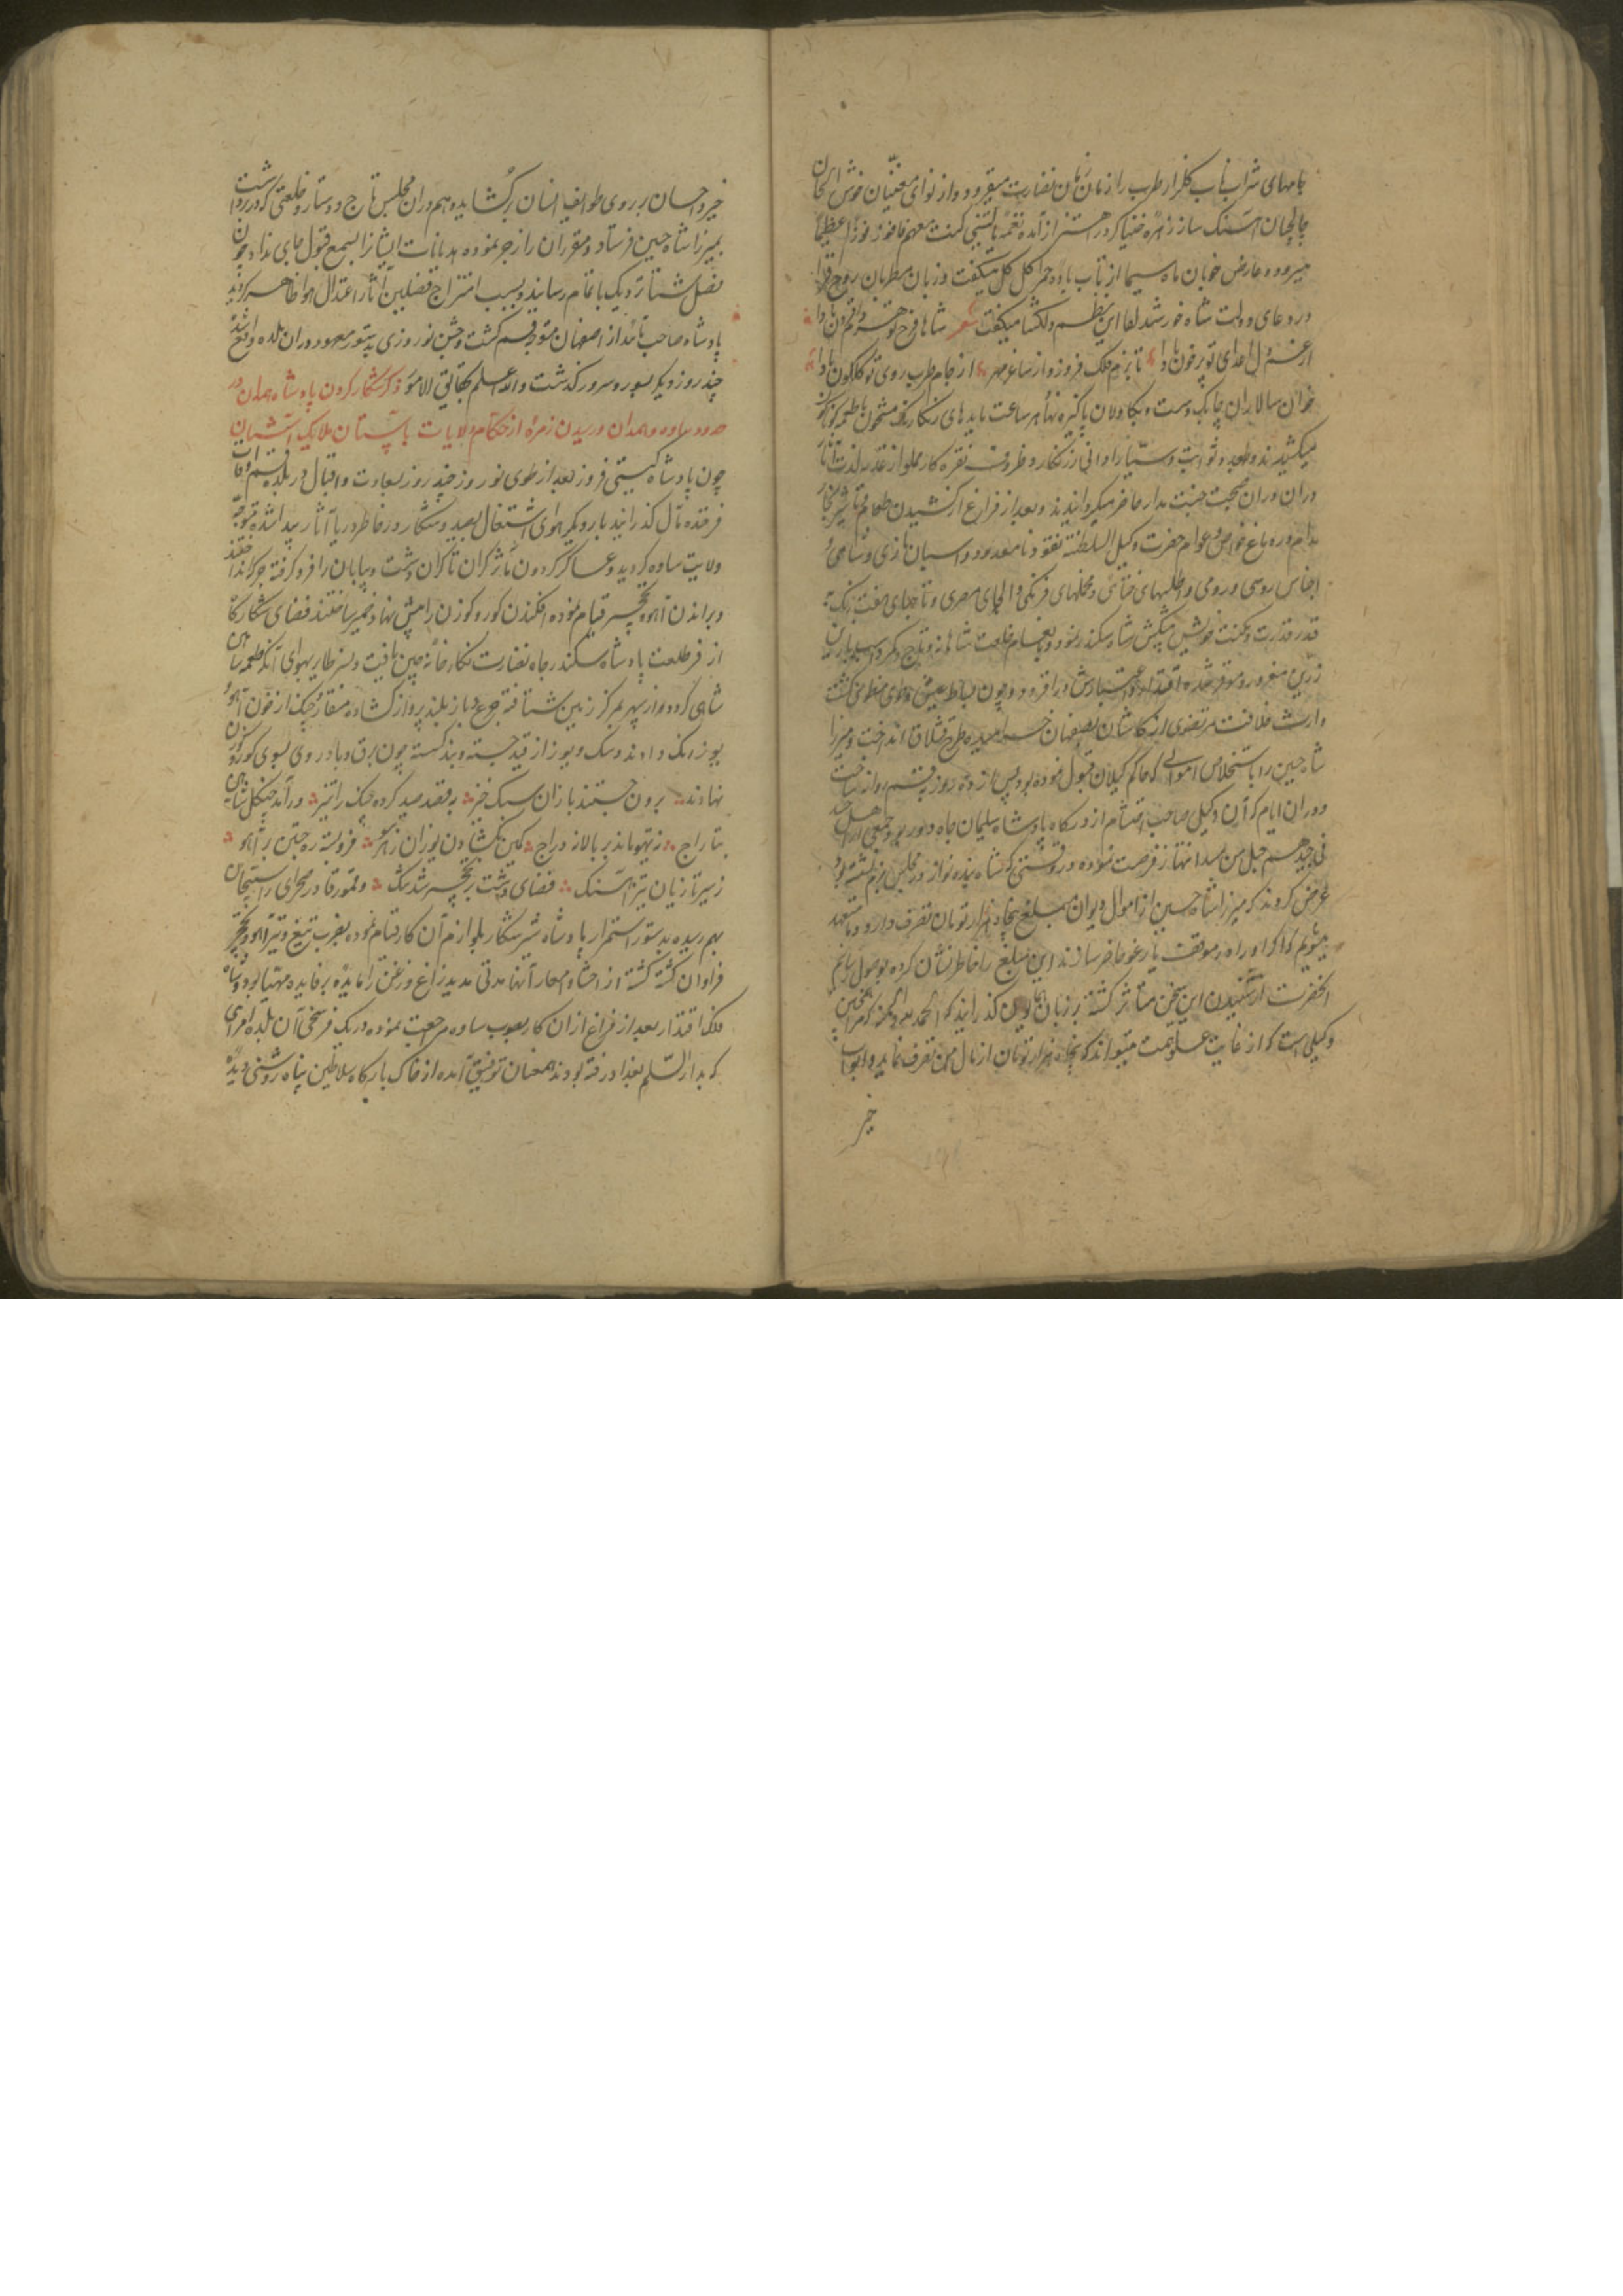 جامهای شراب ناب گلزار طرب را زمان زمان نضارت میفزود و از نوای مغنیان خوش الحان
چالچیان آهنگ ساز زهره خنیاگر در اهتزاز آمده نغمه یا لیتنی کنت معهم فافوز فوزا عظیما
میسرود و عارض خوبان ماه سیما از تاب باده حمرا گل گل میشکفت و زبان مطربان روح افزا
در دعای دولت شاه خورشید لقا این نظم دلگشا میگفت شعر شاها فرح تو هر دم افزون بادا
از غصه دل اعدای تو پر خون بادا تا بزم فلک فروزد از ساغر مهر از جام طرب روی تو گلگون بادا
خوان سالاران چابک دست و بکاولان پاکیزه نهاد هر ساعت مایدهای رنگارنگ مشحون باطعمه گوناگون
میکشیدند و بعدد ثوابت و سیار اوانی زرنگار و ظروف نقره کار مملو از اغذیه لذت آثار
در آن دوران صحبت جنت مدار حاضر میگردانیدند و بعد از فراغ از کشیدن طعام
خواص و عوام حضرت وکیل السلطنة نقود نامعدود و اسبان تازی و شامی و
اجناس روسی و رومی و اطلسهای ختائی و مخملهای فرنگی و مصری و تاجهای هفت رنگ
قدر قدرت و مکنت خویش پیشکش شاه سکندر نمود و بانعام خلعت شاهانه و تاج و کمر و اسب با زین
زرین مفتخر و موقر شده اقتدار و اعتبارش درافزود و چون بساط عیش و طوی منطوی گشت
وارث خلافت مرتضوی از کاشان باصفهان خرامیده طرح قشلاق انداخت و میرزا
شاه حسین را باستخلاص اموالی که حاکم گیلان قبول نموده بود پس از ده روز بقم روانه ساخت
و در آن ایام که آن وکیل صاحب احتشام از درگاه پادشاه سلیمان جاه دور بود جمعی از اهل حسد
فی جیدهم حبل من مسد انتهاز فرصت نموده در وقتی که شاه بنده نواز در مجلس بزم نشسته بود
عرض کردند که میرزا شاه حسین از اموال دیوان مبلغ پنجاه هزار تومان تصرف دارد و ما متعهد
میشویم که اگر او را در موقف یارغو حاضر سازند این مبلغ را خاطر نشان کرده بوصول رسانیم
آنحضرت از شنیدن این سخن متأثر گشته بر زبان همایون گذرانید که الحمد لله و المنه که مرا اینچنین
وکیلی است که از غایت علو همت میتواند که پنجاه هزار تومان از مال من تصرف نماید و ابواب
خیر
خیر و احسان بر روی طوایف انسان برگشاید و هم در آن مجلس تاج و دستار و خلعتی که در بر داشت
بمیرزا شاه حسین فرستاد و مفتریان را زجر نموده هذیانات ایشان را بسمع قبول جای نداد و چون
فصل شتا نزدیک باتمام رسانید و بسبب امتزاج فصلین آثار اعتدال هوا ظاهر گردید
پادشاه صاحب تأیید از اصفهان متوجه قم گشت و جشن نوروزی بدستور معهود در آن بلده واقع شد
چند روز دیگر بسور و سرور گذشت والله اعلم بحقایق الامور ذکر شکار کردن پادشاه جهان در
حدود ساوه و همدان و رسیدن زمره از حکام ولایات بآستان ملایک آشیان
چون پادشاه گیتی فروز بعد از طوی نوروز چند روز بسعادت و اقبال در بلده قم اوقات
فرخنده مآل گذرانید بار دیگر هوای اشتغال بصید و شکار در خاطر دریا آثار پیدا شده متوجه
ولایت ساوه گردید و عساکر گردون مآثر کران تا کران دشت و بیابان را فرو گرفته جرگه انداختند
و براندن آهو و نخجیر قیام نموده افکندن گور و گوزن را پیش نهاد ضمیر ساختند فضای شکارگاه
از فر طلعت پادشاه سکندر جاه نضارت نگارخانه چین یافت و نسر طایر بهوای آنکه طعمه شاهین
شاهی گردد از سپهر بمرکز زمین شتافته چرغ و باز بلند پرواز گشاده منقار و چنگ از خون آهو
یوز رنگ دادند و سگ و یوز از قید جسته و بند گسسته چون برق و باد روی بسوی گور و گوزن
نهادند برون جستند بازان سبک خیز بقصد صید کرده چنگ را تیز درآمد چنگل شاهین
بتاراج ز تیهو ماند بر بالا نه دراج کمین بگشادن یوزان ز هر سو فرو بسته ره جستن بر آهو
ز سیر تازیان تیز آهنگ فضای دشت بر نخجیر شد تنگ و قمورقا در صحرای راستیجان
بهم رسیده بدستور استمرار پادشاه شیر شکار بلوازم آن کار قیام نموده بضرب تیغ و تیر آهو و نخجیر
فراوان کشته گشته از احشا و امعاء آنها مدتی مدید زاغ و زغن را مایده پر فایده مهیا بود و پادشاه
فلک اقتدار بعد از فراغ از آن کار بصوب ساوه مرجعت نموده در یک فرسخی آن بلده امرای
که بدار السلم بغداد رفته بودند همعنان توفیق آمده از خاک بارگاه سلاطین پناه روشنی دیده